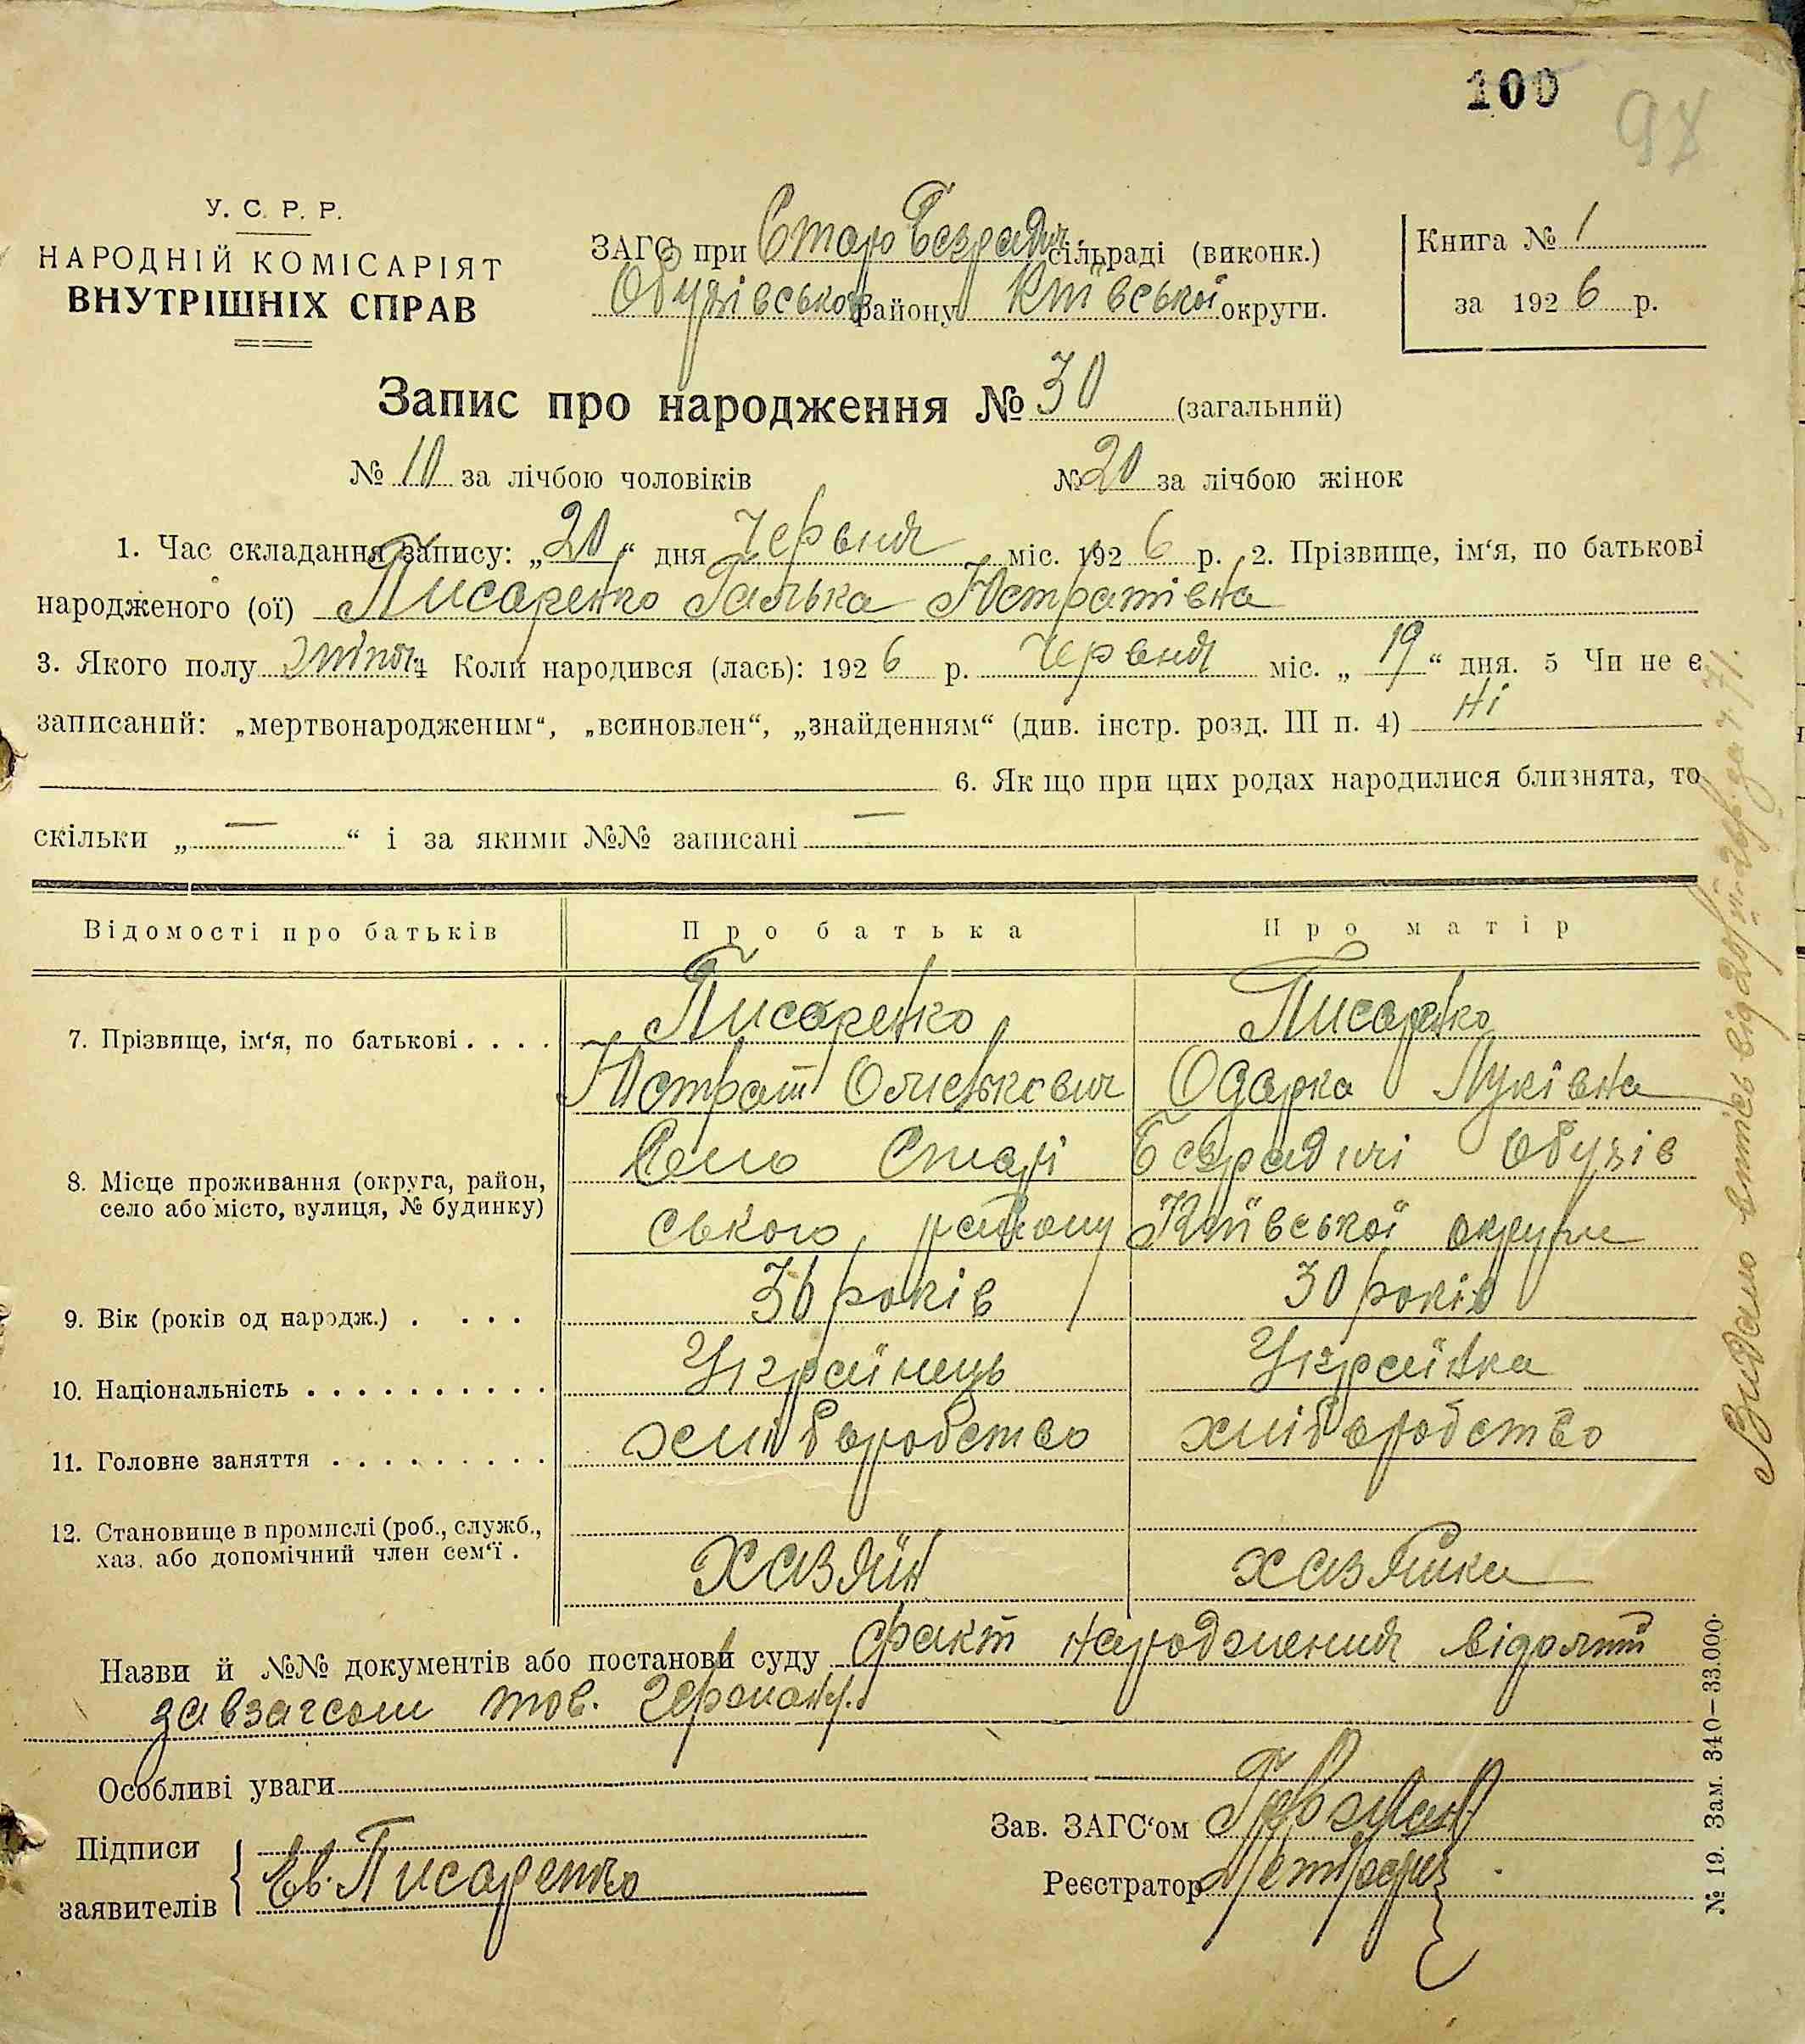 100
98
У. С. Р. Р.
НАРОДНІЙ КОМІСАРІЯТ
ВНУТРІШНІХ СПРАВ
ЗАГС при Старо Безрадич. сільраді (виконк.)
Обухівського району Київської округи.
Книга № 1
за 1926 р.
Запис про народження № 30 (загальний)
№ 10 за лічбою чоловіків № 20 за лічбою жінок
1. Час складання запису: „20“ дня Червня міс. 1926 р. 2. Прізвище, ім‘я, по батькові
народженого (ої) Писаренко Галька Юстратівна
3. Якого полу жіночя 4 Коли народився (лась): 1926 р. Червня міс. „19“ дня. 5 Чи не є
записаний: „мертвонародженим“, „всиновлен“, „знайденням“ (див. інстр. розд. III п. 4) Ні
6. Як що при цих родах народилися близнята, то
скільки „—“ і за якими №№ записані —
Відомості про батьків Про батька Про матір
7. Прізвище, ім‘я, по батькові . . . . Писаренко Писаренко
Юстрат Одарка Луківна
8. Місце проживання (округа, район, село або місто, вулиця, № будинку) Село Старі Безрадичі Обухів
ського району Київської округи
9. Вік (років од народж.) . . . . 36 років 30 років
10. Національність . . . . . . . . . . . Українець Українка
11. Головне заняття . . . . . . . . . хліборобство хліборобство
12. Становище в промислі (роб., служб.,
хаз. або допомічний член сем‘ї . хазяїн хазяйка
Назви й №№ документів або постанови суду факт народження відомий
завзагсом тов.
Особливі уваги
Підписи
заявителів Ев. Писаренко
Зав. ЗАГС‘ом
Реєстратор
№ 19. Зам. 340—33.000.
Видано витяг від